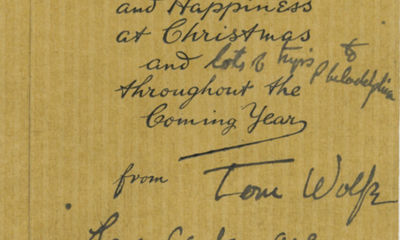 and Happiness
at Christmas
and lots of trips to Philadelphia
throughout the
Coming Year
from Tom Wolfe